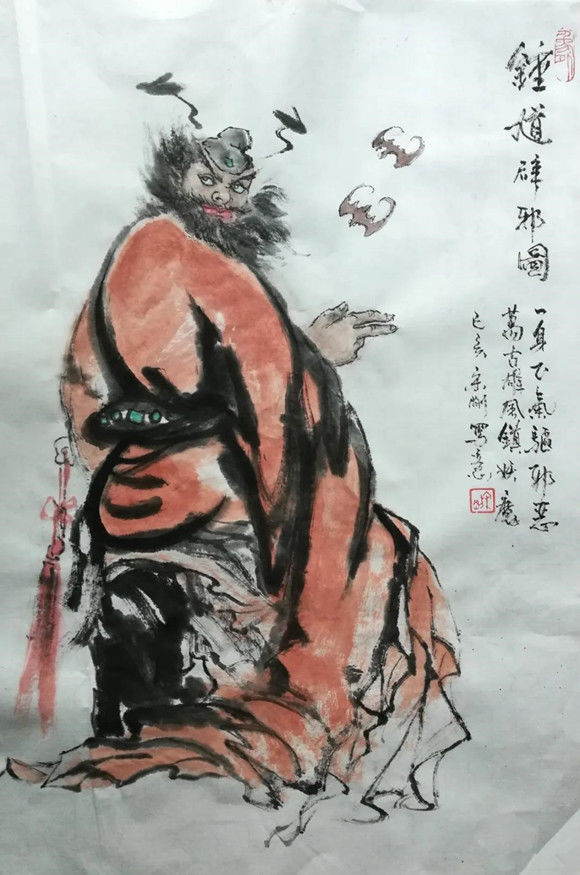 鍾馗辟邪圖
一身正氣驅邪惡
萬古雄風鎮妖魔
己亥寫意